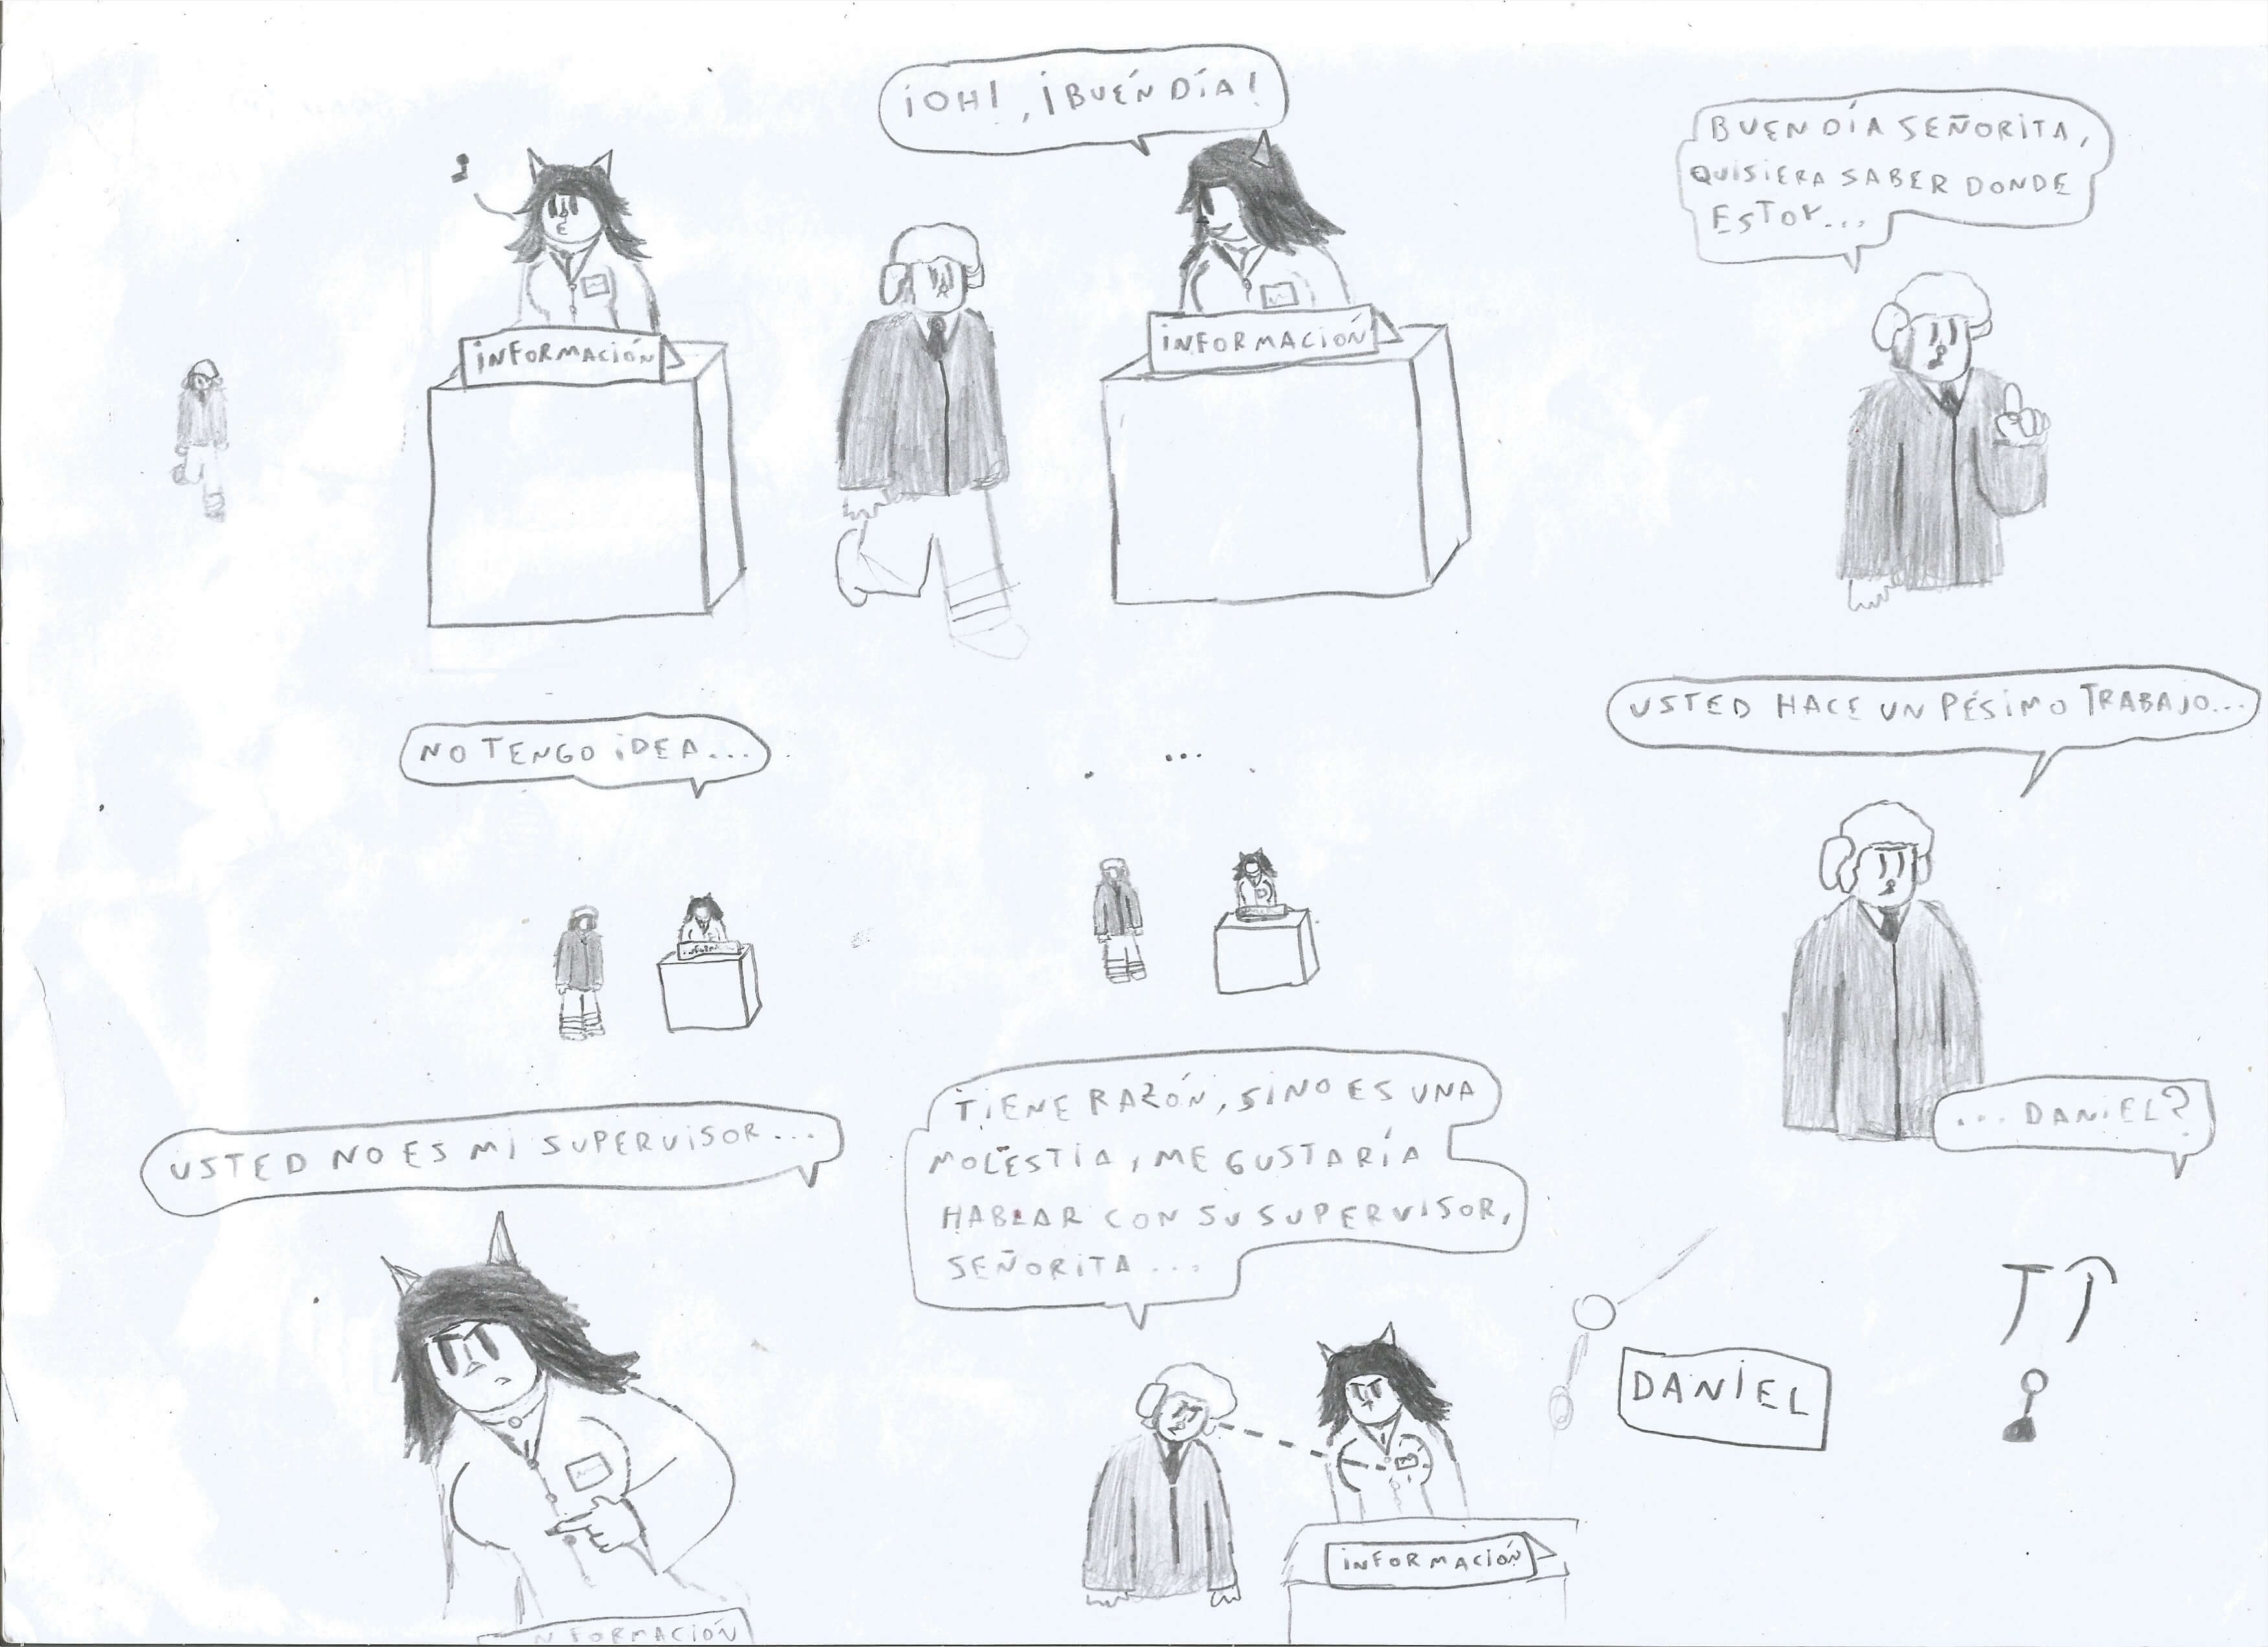 ¡OH!, ¡BUÉN DÍA!
INFORMACIÓN
INFORMACIÓN
BUEN DÍA SEÑORITA,
QUISIERA SABER DONDE
ESTOY...
NO TENGO IDEA...
INFORM
...
USTED HACE UN PÉSIMO TRABAJO...
... DANIEL?
USTED NO ES MI SUPERVISOR...
INFORMACIÓN
TIENE RAZÓN, SINO ES UNA
MOLESTIA, ME GUSTARÍA
HABLAR CON SU SUPERVISOR,
SEÑORITA...
INFORMACIÓN
DANIEL